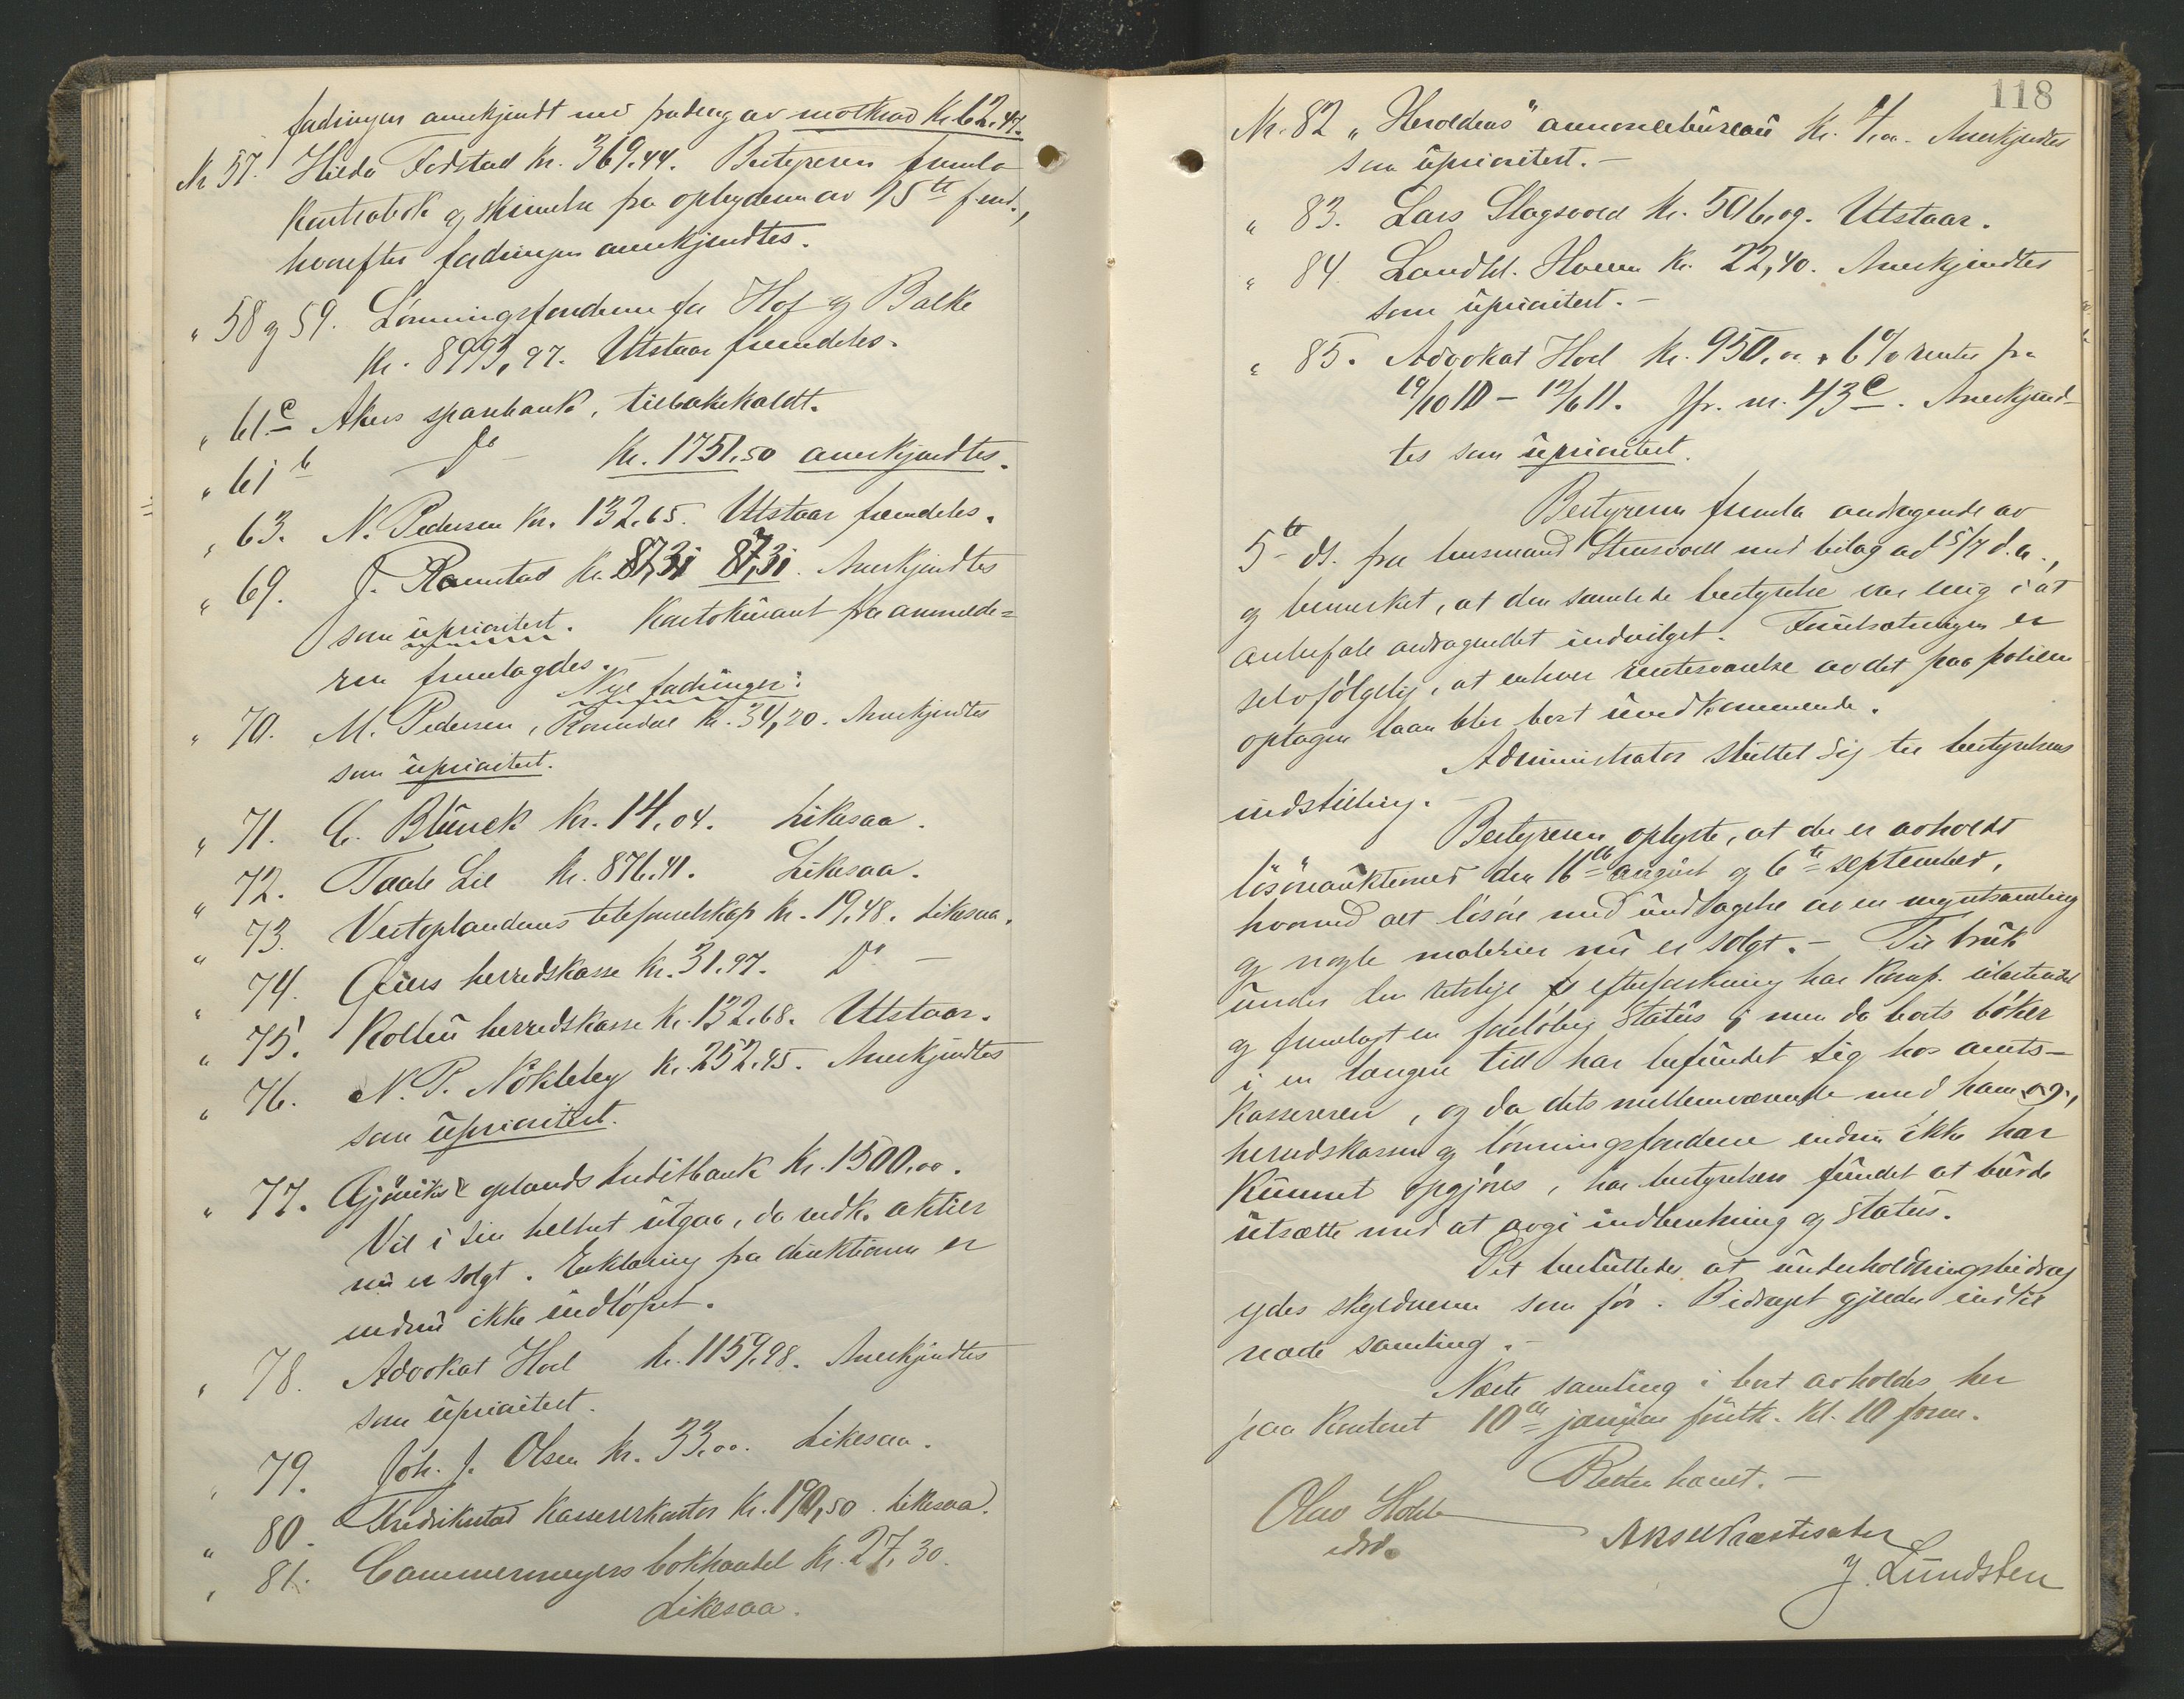 fordringen anerkjendt med fradrag av motkrav Kr. 62.47.
Nr 57. Hilda Fodstad Kr. 369.44. Bestyreren fremla
Kontrabok og skrivelse fra opbyderen av 25de f.md.,
hvorefter fordringen anerkjendtes.
" 58 og 59. Lønningsfondene for Hof og Balke
Kr. 8993,97. Utstaar fremdeles.
" 61 c Akers sparebank, tilbakekaldt.
" 61 b - Do - Kr. 1751.50 anerkjendtes.
" 63. N. Pedersen Kr. 132.65. Utstaar fremdeles.
" 69. J. Ramstad Kr. 87,31 87,31. Anerkjendtes
som uprioritert. Kontokurant fra anmelde=
ren fremlagdes.-
Nye fordringer:
" 70. M. Pedersen, Romedal Kr. 34,20. Anerkjendtes
som uprioritert.
" 71. C. Blunck Kr. 14.04. Likesaa.
" 72. Taale Lie Kr. 876.41. Likesaa.
" 73. Vestoplandenes telefonselskap Kr. 19.48. Likesaa.
" 74. Eiers herredskasse Kr. 31.97. Do -
" 75. Kolbu herredskasse Kr. 132.68. Utstaar.
" 76. N. P. Nøkleby Kr. 252.45. Anerkjendtes
som uprioritert.
" 77. Gjøviks & oplands kreditbank Kr. 1500.00.
Vil i sin helhet utgaa, da vedk. aktier
nu er solgt. Erklæring fra direktionen er
endnu ikke indløpet.
" 78. Advokat Hoel Kr. 1159.98. Anerkjendtes
som uprioritert.
" 79. Joh. J. Olsen Kr. 33.00. Likesaa.
" 80. Fredrikstad Kassererkontor Kr. 190,50. Likesaa.
" 81. Cammermeyers bokhandel Kr. 27,30.
Likesaa.
118
Nr. 82 "Heroldens" annoncebureau Kr. Anerkjendtes
som uprioritert.-
" 83. Lars Slagsvold Kr. 506,09. Utstaar.
" 84. Landhl. Hoven Kr. 22,40. Anerkjendtes
som uprioritert.-
" 85. Advokat Hoel Kr. 950,00 + 6% renter fra
19/10 10 - 12/6 11. Jfr. nr. 43 c. Anerkjend-
tes som uprioritert.
Bestyreren fremla andragende av
5te ds. fra lensmand Stensvold med bilag ad 5/7 d.a.,
og bemerket, at den samlede bestyrelse var enig i at
anbefale andragendet indvilget. Forutsætningen er
selvfølgelig, at enhver rentesvarelse av det paa polisen
optagne laan blir boet uvedkommende.
Administrator sluttet sig til bestyrelsens
indstilling.-
Bestyreren oplyste, at der er avholdt
løsøreauktioner den 16de august og 6te september,
hvorved alt løsøre med undtagelse av en myntsamling
og nogle malerier nu er solgt.- Til bruk
under den retslige efterforskning har Komp. utarbeidet
og fremlagt en foreløbig status; men da boets bøker
i en længere tid har befundet sig hos amts-
kassereren, og da dets mellemværende med ham og,
herredskassen og lønningsfondene endnu ikke har
kunnet opgjøres, har bestyrelsen fundet at burde
utsætte med at avgi indberetning og status.
Det besluttedes at underholdningsbidrag
ydes skyldneren som før. Bidraget gjælder indtil
næste samling.-
Næste samling i boet avholdes her
paa Kontoret 10de januar førstk. Kl. 10 form.
Retten hævet.-
Olav
edsv.
Aksel Præstesæter
J. Lundsten